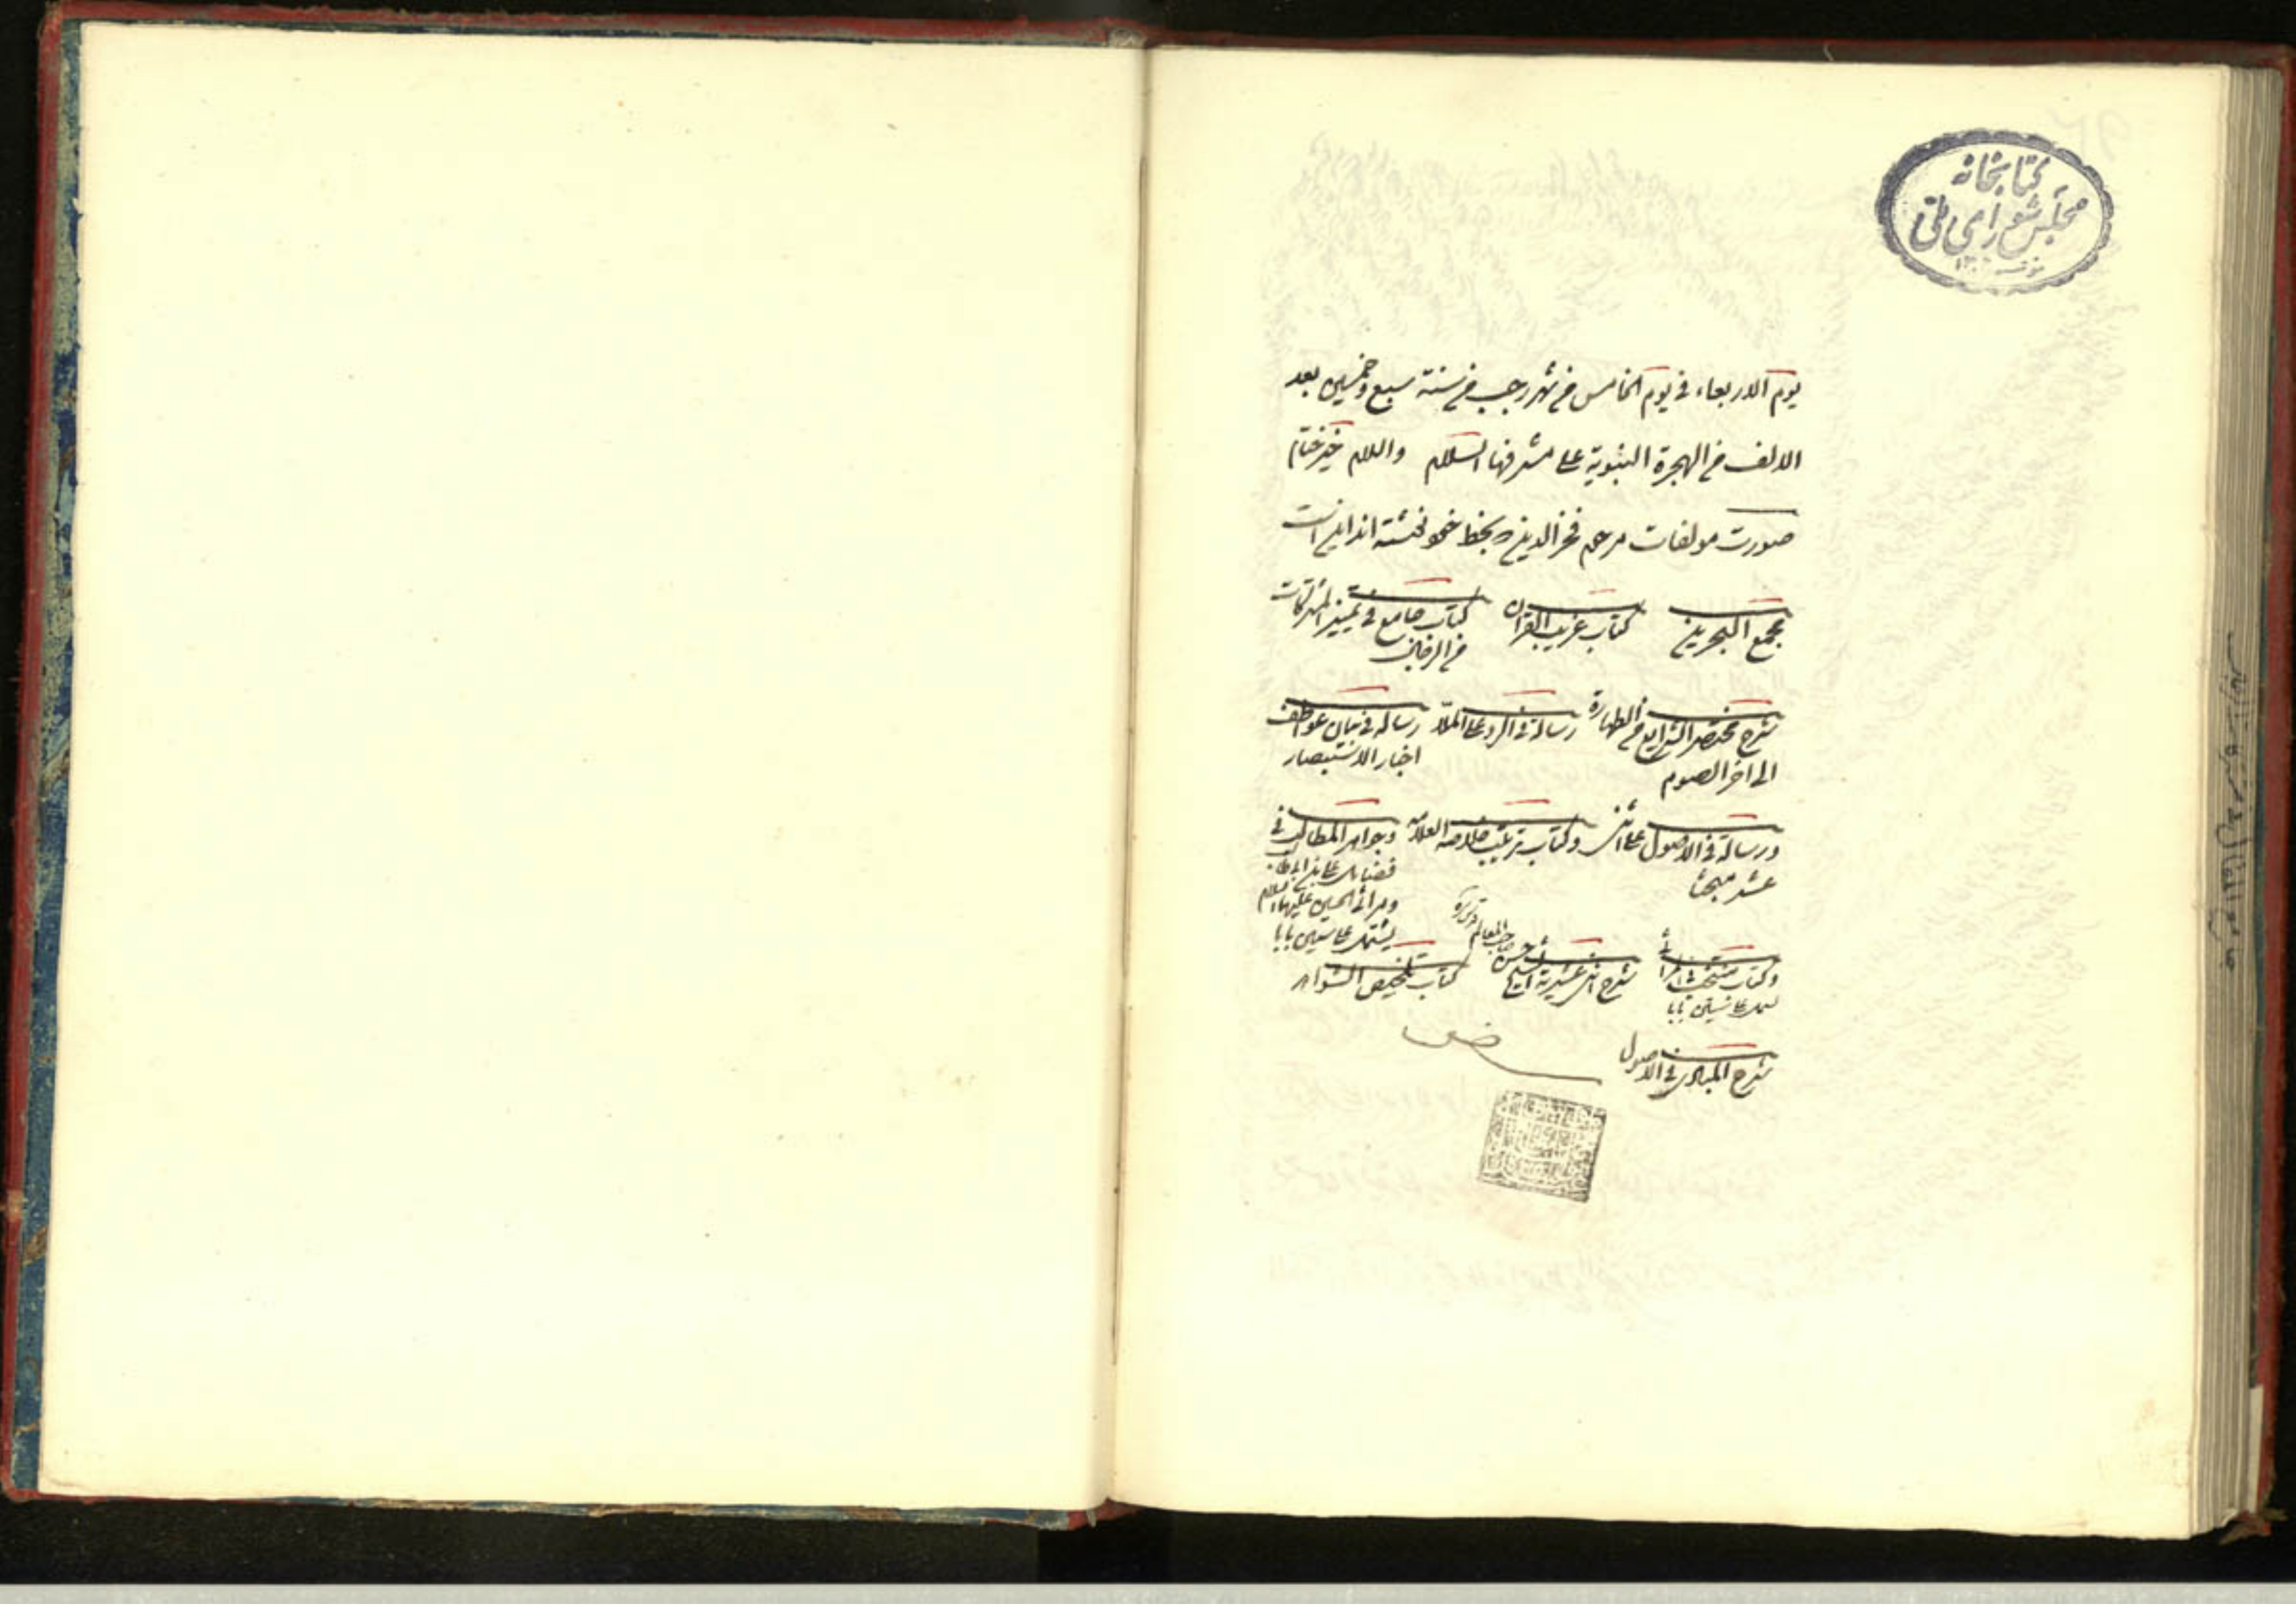 كتابخانه
مجلس شورای ملی
يوم الاربعاء في يوم الخامس من شهر رجب من سنة سبع وخمسين بعد
الالف من الهجرة النبوية على مشرفها السلام والسلام خير ختام
صورت مولفات مرحوم فخر الدين بخط خود نوشته اند اين است
مجمع البحرين كتاب غريب القران كتاب جامع في تميز المشتركات
من الرجال
شرح مختصر الشرايع من الطهارة رسالة في الرد على رساله في بيان
الى اخر الصوم اخبار الاستبصار
ورسالة في الاصول على اثنى وكتاب ترتيب خلاصة العلامه وجواهر المطالب في
عشر مبحثا فضايل على بن ابى طالب
ومراثى الحسين عليهما السلام
يشتمل على ستين بابا
وكتاب منتخب شرح اثنى عشرية الشيخ حسن صاحب المعالم كتاب تلخيص الشواهد
على ستين بابا
شرح المبادى في الاصول